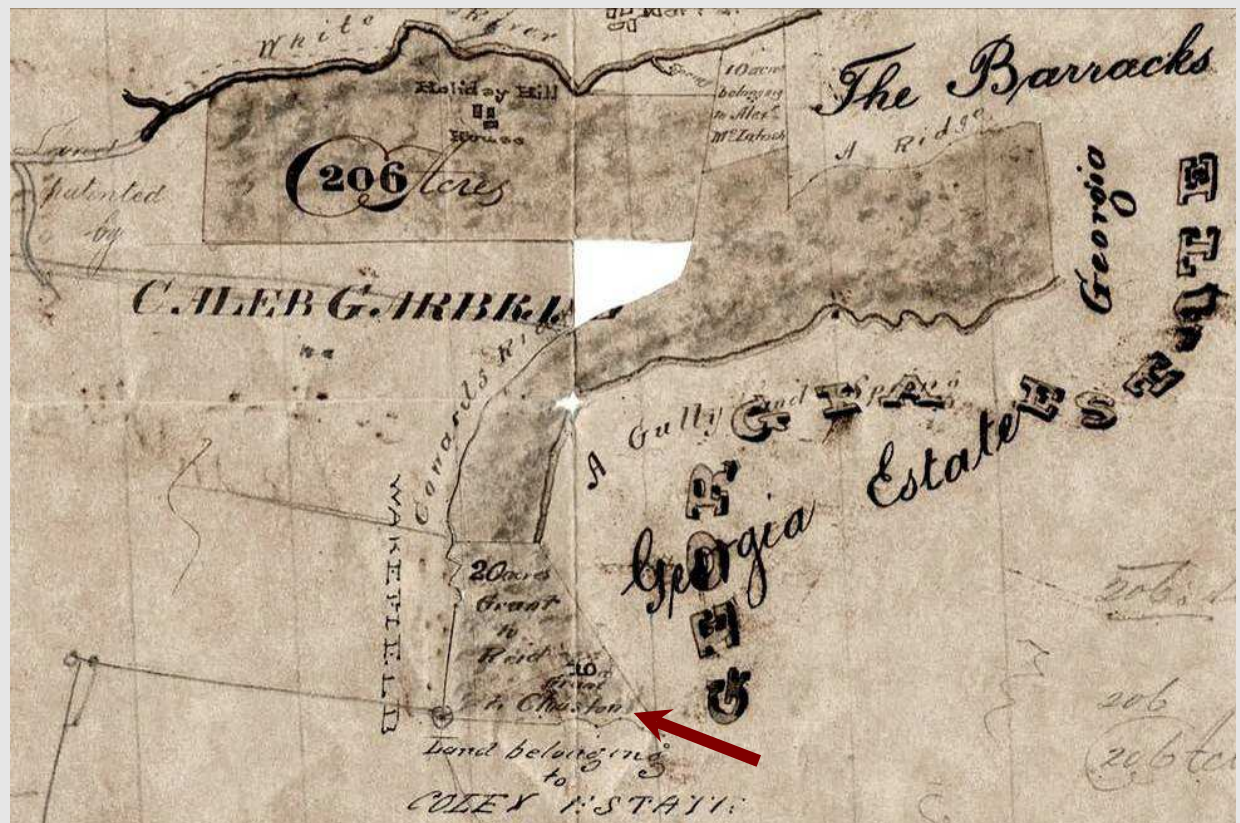 White River
Holiday Hill
House
206 Acres
Spring
10 acres
belonging
to Alexr
McIntosh
The Barracks
A Ridge
Georgia
Land
patented
by
CALEB GARBRA
Cowards Ri
A Gully and Springs
GEORGIA ESTATE
Georgia Estate
WAKEFIELD
20 acres
Grant
to
Reid
Grant
to
Land belonging
to
ESTATE
206
206